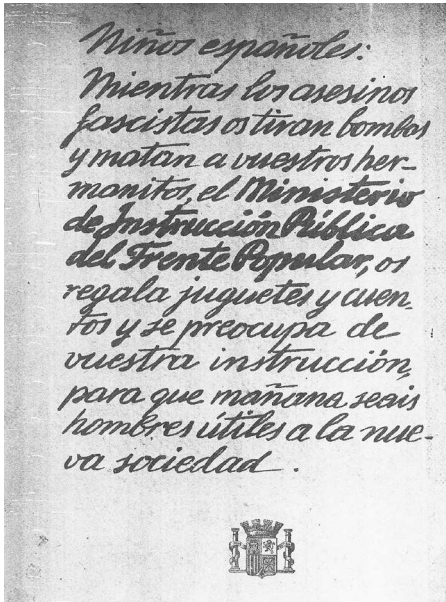 Niños españoles:
Mientras los asesinos
fascistas os tiran bombas
y matan a vuestros her-
manitos, el Ministerio
de Instrucción Pública
del Frente Popular, os
regala juguetes y cuen-
tos y se preocupa de
vuestra instrucción,
para que mañana seais
hombres útiles a la nue-
va sociedad.